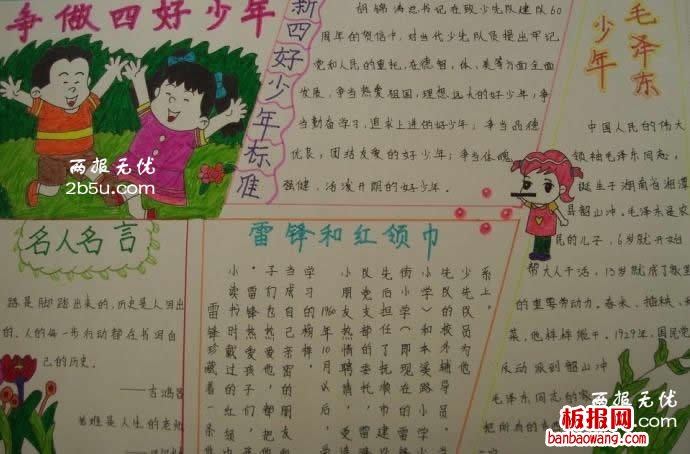 争做四好少年
新四好少年标准
胡锦涛总书记在致少先队建队60
周年的贺信中,对当代少先队员提出牢记
党和人民的重托,在德、智、体、美等方面全面
发展,争当热爱祖国,理想远大的好少年;争
当勤奋学习,追求上进的好少年;争当品德
优良,团结友爱的好少年;争当体魄
强健,活泼开朗的好少年。
毛泽东
少年
中国人民的伟大
领袖毛泽东同志,
诞生于湖南省湘潭
县韶山冲。毛泽东是农
民的儿子,6岁就开始
帮大人干活,13岁就成了家里
的重要劳动力。春来、插秧、
菜,他样样能干。1929年,国民党
反动派到韶山冲
毛泽东同志的家
把所有的东西
名人名言
路是脚踏出来的,历史是人写出
的。人的每一步行动都在书写自
己的历史。
——吉鸿昌
苦难是人生的老师
雷锋和红领巾
系上。
少先队员为他
先队校外辅导员。
小学)和本溪路小学
街小学(即现在雷锋
先后担任了抚顺市建设
队党委的委托,
小朋友热情聘请,受
1960年10月以后,
学习的榜样。
当成自己亲密的朋友
们热爱他,都把
。雷锋热爱孩子们,孩
小读书时戴过的红领巾
雷锋珍藏着一条
两报无优
2b5u.com
两报无优
2b5u.com
板报网
banbaowang.com